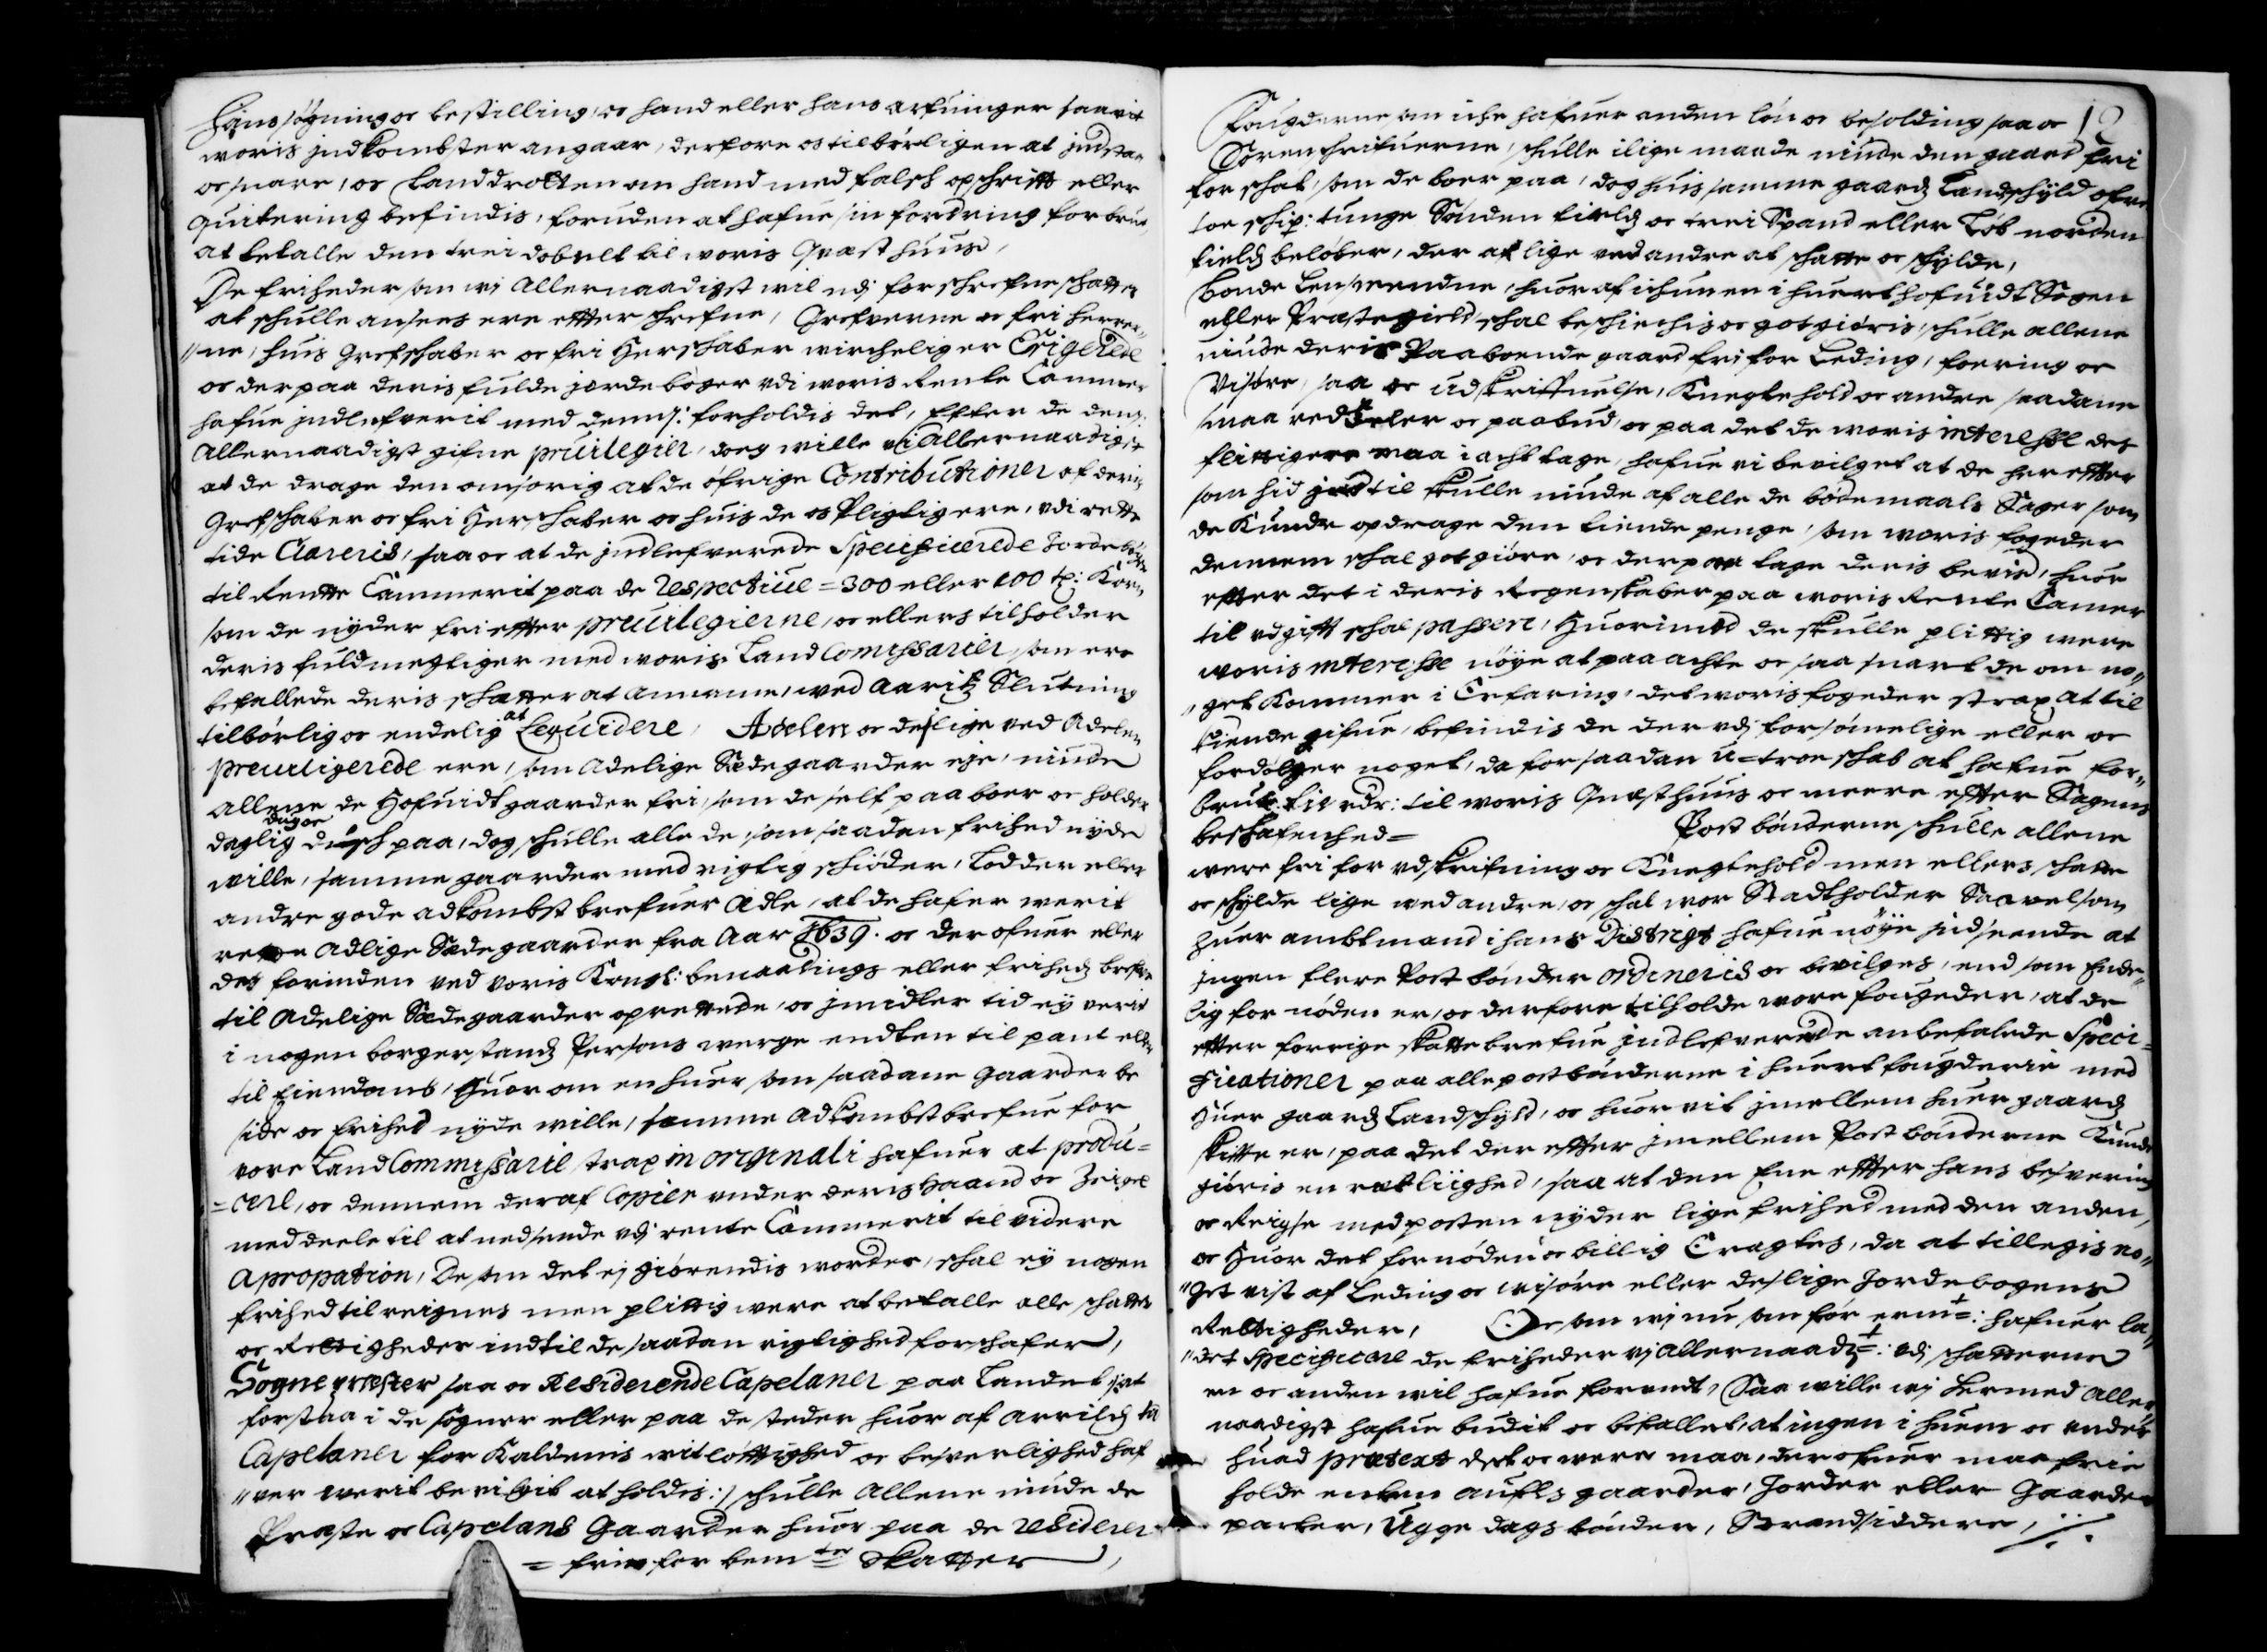 Hans søgning oc bestilling, oc hand eller hans arfuinger saavit
woris jndkombster angaar, derfore os tilbørligen at jndstaa
oc suare, oc Landdrotten om hand med falsk opschrift eller
quitering befindis, foruden at hafue sin fordring forbrut,
at betalle den trei dobbelt til woris Quæsthuus,
De friheder som wj Allernaadigst wil udj forschrefne schatter
at schulle ansees ere effter schrefne, Grefverne oc fri herrer,,
,,ne, huis Grefschaber oc fri Herschaber wirchelig er Erigerede
oc der paa deris fulde jordebøger vdi woris Rente Cammer
hafue jndlefverit med dennem forholdis det, Efter de dem
Allernaadigst gifne preuilegier, dog wille wi Allernaadigst
at de drage den omsorig at de øfrige Contributioner af deris
Grefschaber oc fri Herschaber oc huis de os Pligtig ere, vdi rette
tide Clareris, saa oc at de jndlefverede Specificerede Jordebøger
til Rentte Cammerit paa de respective = 300 eller 100 tr: Korn
som de nyder fri effter preuilegierne, oc ellers tilholder
deris fuldmegtiger med woris Land Comissarier, som ere
befallede deris schatter at annamme, wed Aaritz Slutning
tilbørlig oc endelig at Leqvidere, Adelen oc deslige ved Adelen
preuiligerede ere, som Adelige Sædegaarder eje, niude
Allene de Hofuidt gaarder fri, som de self paa boer oc holder
daglig dug oc disch paa, dog schulle alle de, som saadan frihed nyde
wille, samme gaarder med rigtig schiøder, Lodder eller
andre gode adkombst brefuer Adle, at de hafer werit
rette Adlige Sædegaarder fra Aar 1639. oc der ofuer eller
des forinden ved voris Kongl: benaadings eller friheds brefue
til Adelige Sædegaarder oprettede, oc jmidler tid ey verit
i nogen borgerstands Persons werge endten til pant eller
til Eiendomb, Huor om en huer som saadane Gaarder be
side oc frihed nyde wille, samme Adkombst brefue for
vore Land Commissarie strax in originali hafuer at produ=
=cere, oc dennem der af Copier vnder deris Haand oc Zeigel
meddeele til at nedsende vdj rente Cammerit til videre
Apropation, De som det ej giørendis worder, schal ey nogen
frihed tilreignes men plittig were at betalle alle schatter
oc Rettigheder indtil de saadan rigtighed forschafer,
Sogne præster saa oc Residerende Capelaner paa Landet :/at
forstaa i de sogner eller paa de steder huor af Arrilds tid
Capelaner for Kaldenis vitløfttighed oc besverlighed haf
,,ver werit bevilgit at holdis:/ schulle Allene niude de
Præste oc Capelans Gaarder huor paa de residerer
= frie for bem.ter Skatter,
12
Fougderne som iche hafuer anden løn oc besolding saa oc
Sorenschrifuerne, schulle ilige maade niude den gaard fri
for schat, som de boer paa, dog huis samme gaards Landschyld ofver
toe schip: tunge Sønden fields oc trei Spand eller Løb norden
fields beløber, der af lige ved andre at schatte oc schylde,
Bonde Lensmendene, huor af ichun en i huert hofuidt Sogen
eller Prestegield schal beschiches oc got giøris, schulle allene
niude deris Paaboende gaard fri for Leding, foering oc
Visøre, saa oc udskriffuelse, Knegtehold oc andre saadane
smaa redtzeler oc paabud, oc paa det de woris interesse des
flittigere maa i acht tage, hafue vi bevilget at de her effter
som hid jndtil skulle niude af alle de bødemaals Sager som
de kunde opdrage den tiende penge, som woris fogeder
dennem schal got giøre, oc der paa tage deris bevis, huor
effter det i deris Regenskaber paa woris Rente Camer
til vdgift schal passere, Huorimod de skulle plittig were
woris interesse nøye at paa achte oc saa snart de om no,,
,,get kommer i Erfaring, det woris fogeder strax at til
kiende gifue, befindis de der vdj forsømelige eller oc
fordølger noget, da for saadan u=troeschab at hafue for,,
brut tiv rdr: til woris Quæsthuus oc meere effter Sagens
beskafenhed= Post bønderne schulle allene
were fri for vdskrifning oc Knegtehold men ellers schatte
oc schylde lige wed andre, oc schal wor Stadtholder Saavelsom
Huer ambtmand i hans District hafue nøye jndseende at
jngen flere Post bønder ordineris oc bevilges, end som Ende,,
lig for nøden er, oc derfore tilholde wore fougeder, at de
effter forrige skattebrefue jndlefverede anbefalede Speci=
ficationer paa alle postbønderne i huert fougderie med
Huer gaards Landschyld, oc huor vit jmellem huer gaards
skifte er, paa det der effter jmellem Post bønderne kunde
giøris en ratliighed, saa at den Ene effter hans besvering
oc Reigse med posten nyder lige frihed med den anden,
oc Huor det fornøden oc billig Eragtes, da at tillegis no,,
,,get vist af Leding oc wisøre eller deslige Jordebogens
Rettigheder, Oc som wj nu som før ermt: hafuer la,,
,,det Specificere de friheder vj Allernaadst: vdj schatterne
en oc anden wil hafue forundt, Saa wille wj hermed Aller
naadigst hafue budit oc befallet, at ingen i huem oc under
huad pretext det oc were maa, der ofuer maa frie
holde enten aufls gaarder, Jorder eller Gaarde
parter, Ugge dags bønder, Strandsiddere, ·/·